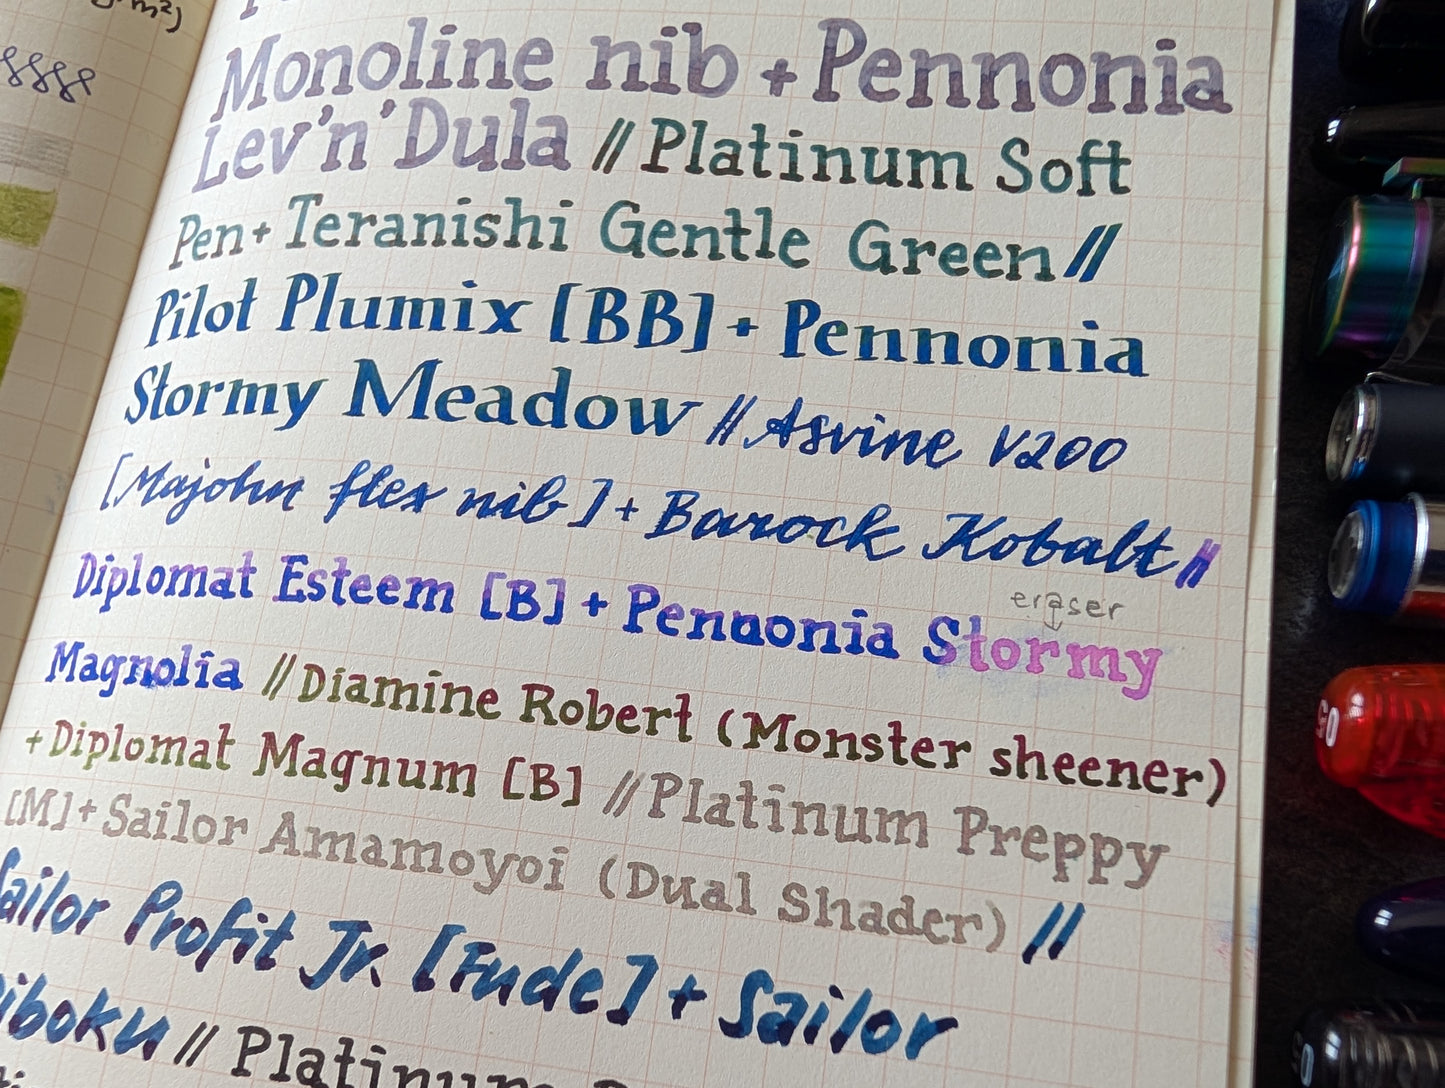 m²)
Monoline nib + Pennonia
Lev'n'Dula // Platinum Soft
Pen + Teranishi Gentle Green //
Pilot Plumix [BB] + Pennonia
Stormy Meadow // Asvine V200
[Majohn flex nib] + Barock Kobalt //
Diplomat Esteem [B] + Pennonia Stormy
eraser
Magnolia // Diamine Robert (Monster sheener)
+ Diplomat Magnum [B] // Platinum Preppy
[M] + Sailor Amamoyoi (Dual Shader) //
Sailor Profit Jr. [Fude] + Sailor
iboku // Platinum